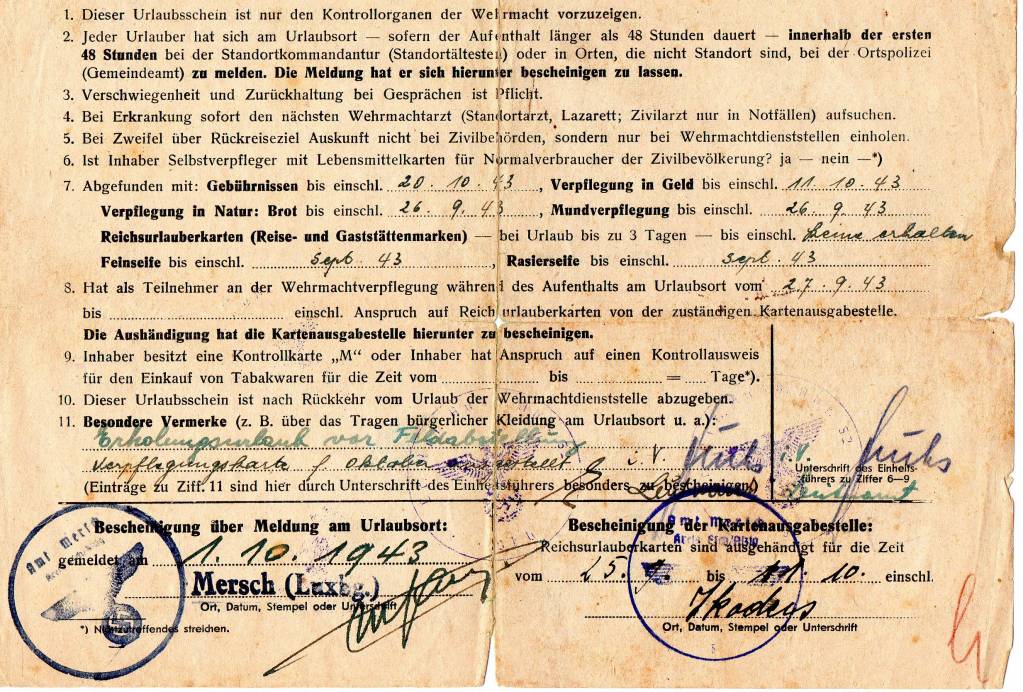 1. Dieser Urlaubsschein ist nur den Kontrollorganen der Wehrmacht vorzuzeigen.
2. Jeder Urlauber hat sich am Urlaubsort — sofern der Aufenthalt länger als 48 Stunden dauert — innerhalb der ersten
48 Stunden bei der Standortkommandantur (Standortältesten) oder in Orten, die nicht Standort sind, bei der Ortspolizei
(Gemeindeamt) zu melden. Die Meldung hat er sich hierunter bescheinigen zu lassen.
3. Verschwiegenheit und Zurückhaltung bei Gesprächen ist Pflicht.
4. Bei Erkrankung sofort den nächsten Wehrmachtarzt (Standortarzt, Lazarett; Zivilarzt nur in Notfällen) aufsuchen.
5. Bei Zweifel über Rückreiseziel Auskunft nicht bei Zivilbehörden, sondern nur bei Wehrmachtdienststellen einholen.
6. Ist Inhaber Selbstverpfleger mit Lebensmittelkarten für Normalverbraucher der Zivilbevölkerung? ja — nein —*)
7. Abgefunden mit: Gebührnissen bis einschl. 20. 10. 43, Verpflegung in Geld bis einschl. 11. 10. 43
Verpflegung in Natur: Brot bis einschl. 26. 9. 43, Mundverpflegung bis einschl. 26. 9. 43
Reichsurlauberkarten (Reise- und Gaststättenmarken) — bei Urlaub bis zu 3 Tagen — bis einschl. keine erhalten
Feinseife bis einschl. Sept. 43, Rasierseife bis einschl. Sept. 43
8. Hat als Teilnehmer an der Wehrmachtverpflegung während des Aufenthalts am Urlaubsort vom 27. 9. 43
bis einschl. Anspruch auf Reichsurlauberkarten von der zuständigen Kartenausgabestelle.
Die Aushändigung hat die Kartenausgabestelle hierunter zu bescheinigen.
9. Inhaber besitzt eine Kontrollkarte „M" oder Inhaber hat Anspruch auf einen Kontrollausweis
für den Einkauf von Tabakwaren für die Zeit vom bis = Tage*).
10. Dieser Urlaubsschein ist nach Rückkehr vom Urlaub der Wehrmachtdienststelle abzugeben.
11. Besondere Vermerke (z. B. über das Tragen bürgerlicher Kleidung am Urlaubsort u. a.):
Erholungsurlaub vor Feldabstellung
Verpflegungskarte f. Oktober i. V.
i. V.
(Einträge zu Ziff. 11 sind hier durch Unterschrift des Einheitsführers besonders zu bescheinigen)
Unterschrift des Einheits-
führers zu Ziffer 6—9
Bescheinigung über Meldung am Urlaubsort:
gemeldet am 1. 10. 1943
Mersch (Luxbg.)
Ort, Datum, Stempel oder Unterschrift
*) Nichtzutreffendes streichen.
Amt Mersch
Bescheinigung der Kartenausgabestelle:
Reichsurlauberkarten sind ausgehändigt für die Zeit
vom 25. 9. bis 10. einschl.
Ort, Datum, Stempel oder Unterschrift
Amt Mersch